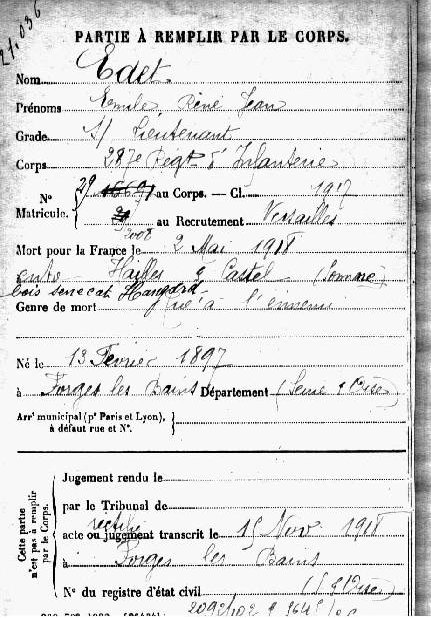 21.036
PARTIE À REMPLIR PAR LE CORPS.
Nom Edet.
Prénoms Emile, René Jean
Grade S/ Lieutenant
Corps 287e Regt d'Infanterie
N° 29 au Corps. — Cl. 1917
Matricule. 2008 au Recrutement Versailles
Mort pour la France le 2 Mai 1918
entre Hailles & Castel (Somme)
bois senecat Hangard
Genre de mort Tué à l'ennemi
Né le 13 Fevrier 1897
à Forges les Bains Département (Seine & Oise)
Arrt municipal (pr Paris et Lyon),
à défaut rue et N°.
Cette partie
n'est pas à remplir
par le Corps.
Jugement rendu le
par le Tribunal de
rectifié
acte ou jugement transcrit le 15 Nov. 1918
à Forges les Bains
(S & Oise)
N° du registre d'état civil